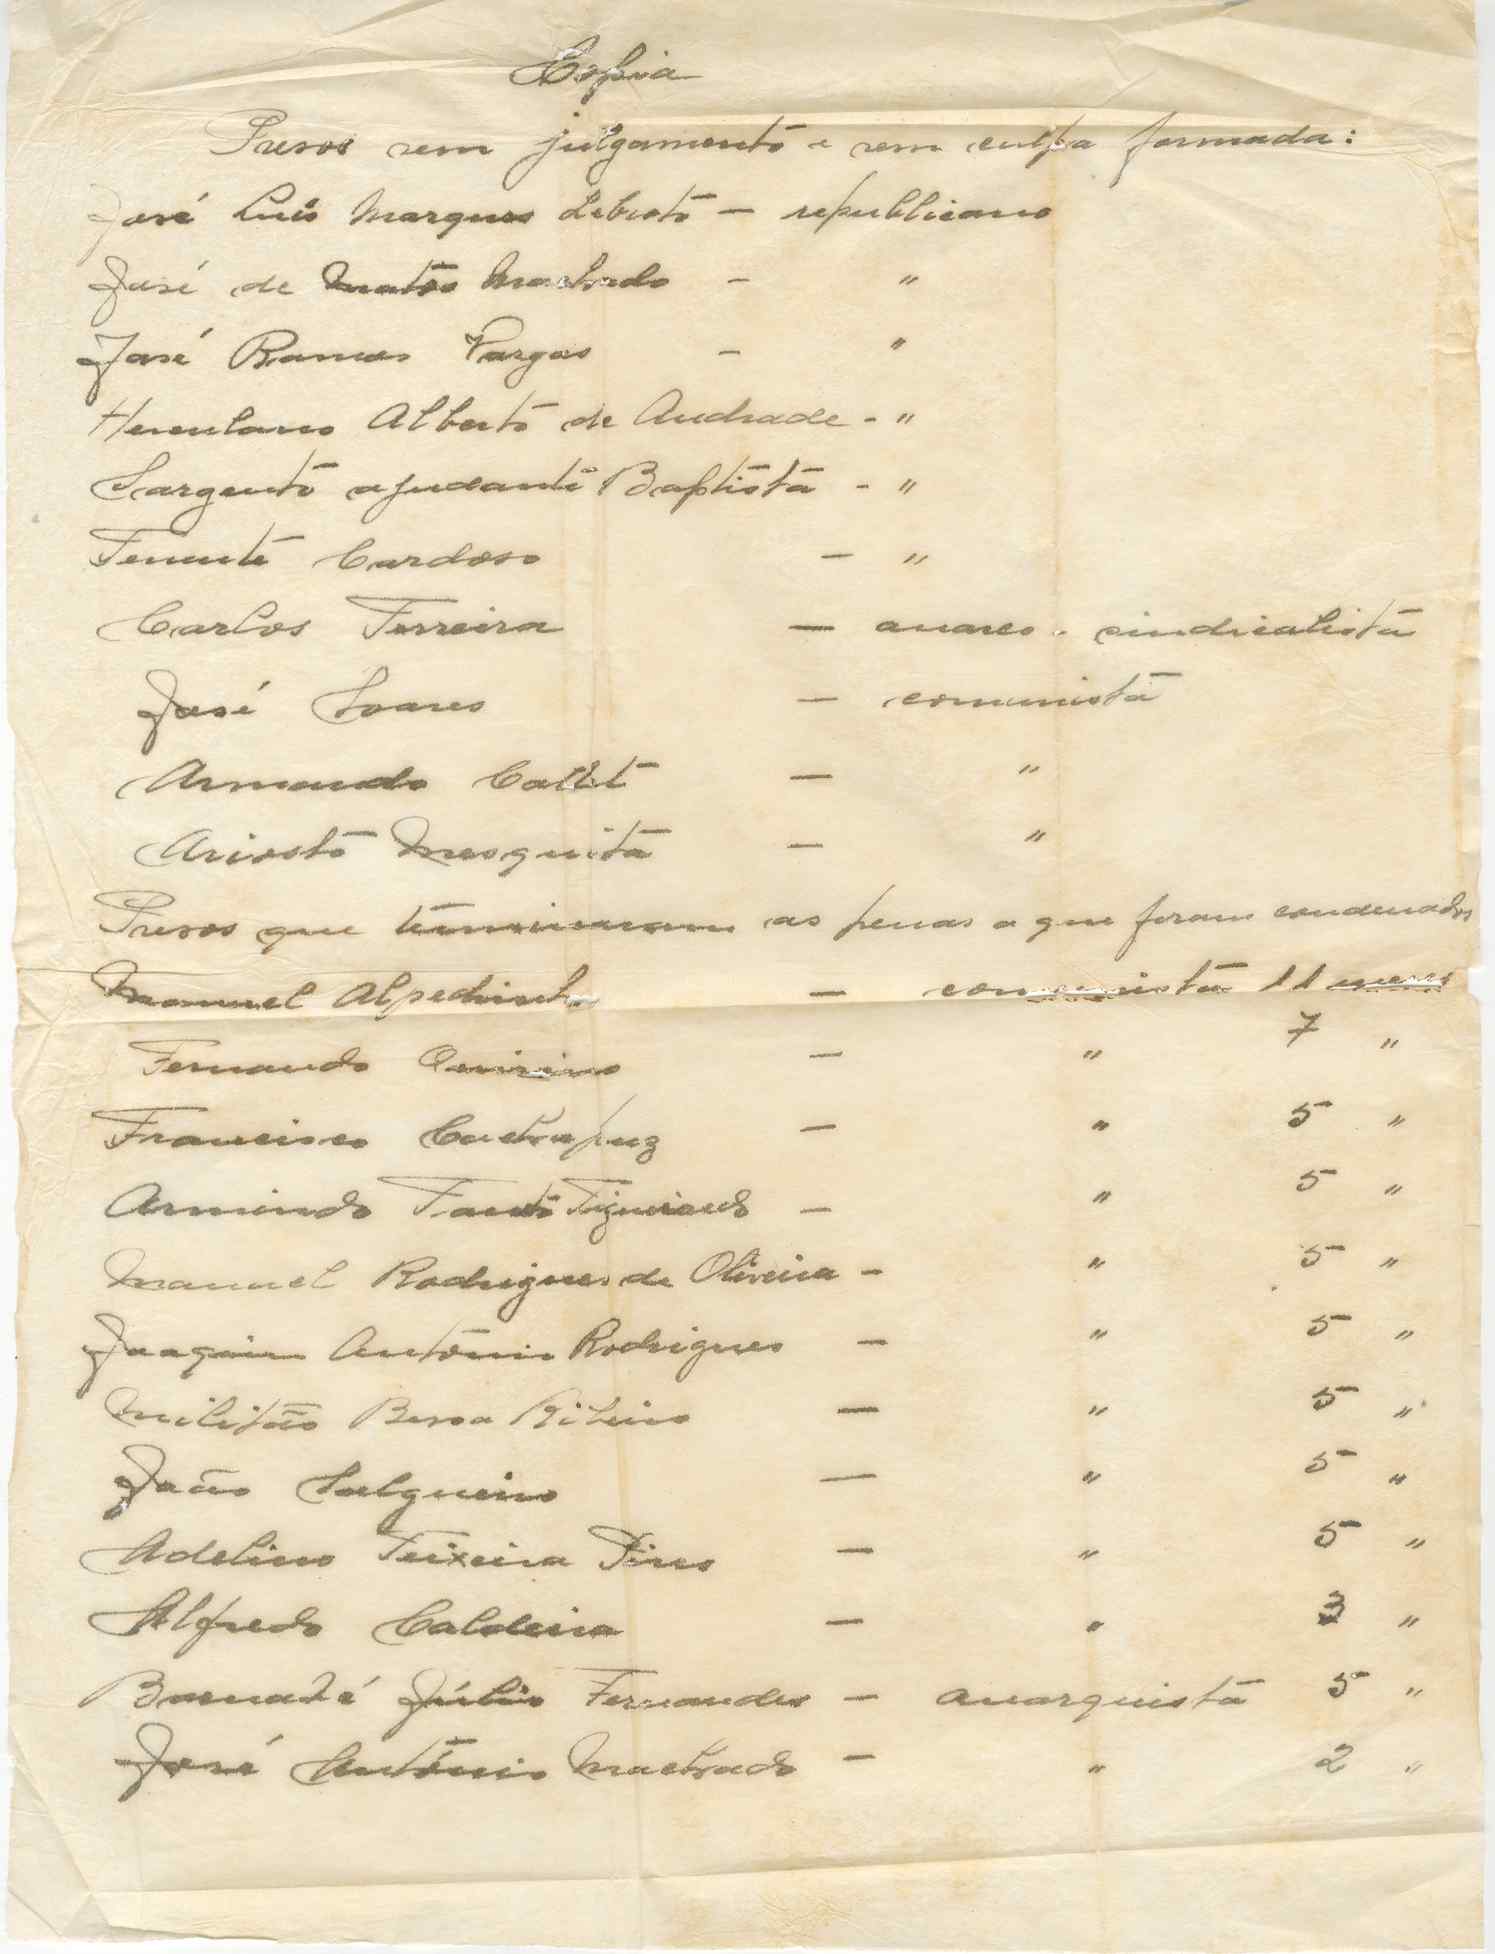 Cópia
Presos sem julgamento e sem culpa formada:
José Luís Marques Lebroto — republicano
José de Matos Machado — "
José Ramos Vargas — "
Herculano Alberto de Andrade - "
Sargento ajudante Baptista - "
Tenente Cardoso — "
Carlos Ferreira — anarco-sindicalista
José Soares — comunista
Armando Callet — "
Ariosto Mesquita — "
Presos que terminaram as penas a que foram condenados
Manuel Alpedrinha — comunista 11 meses
Fernando Quirino — " 7 "
Francisco Castrapuz — " 5 "
Armindo Fausto Figueiredo — " 5 "
Manuel Rodrigues de Oliveira — " 5 "
Joaquim António Rodrigues — " 5 "
Militão Bessa Ribeiro — " 5 "
João Salgueiro — " 5 "
Adelino Teixeira Pires — " 5 "
Alfredo Caldeira — " 3 "
Bernabé Júlio Fernandes — anarquista 5 "
José António Machado — " 2 "